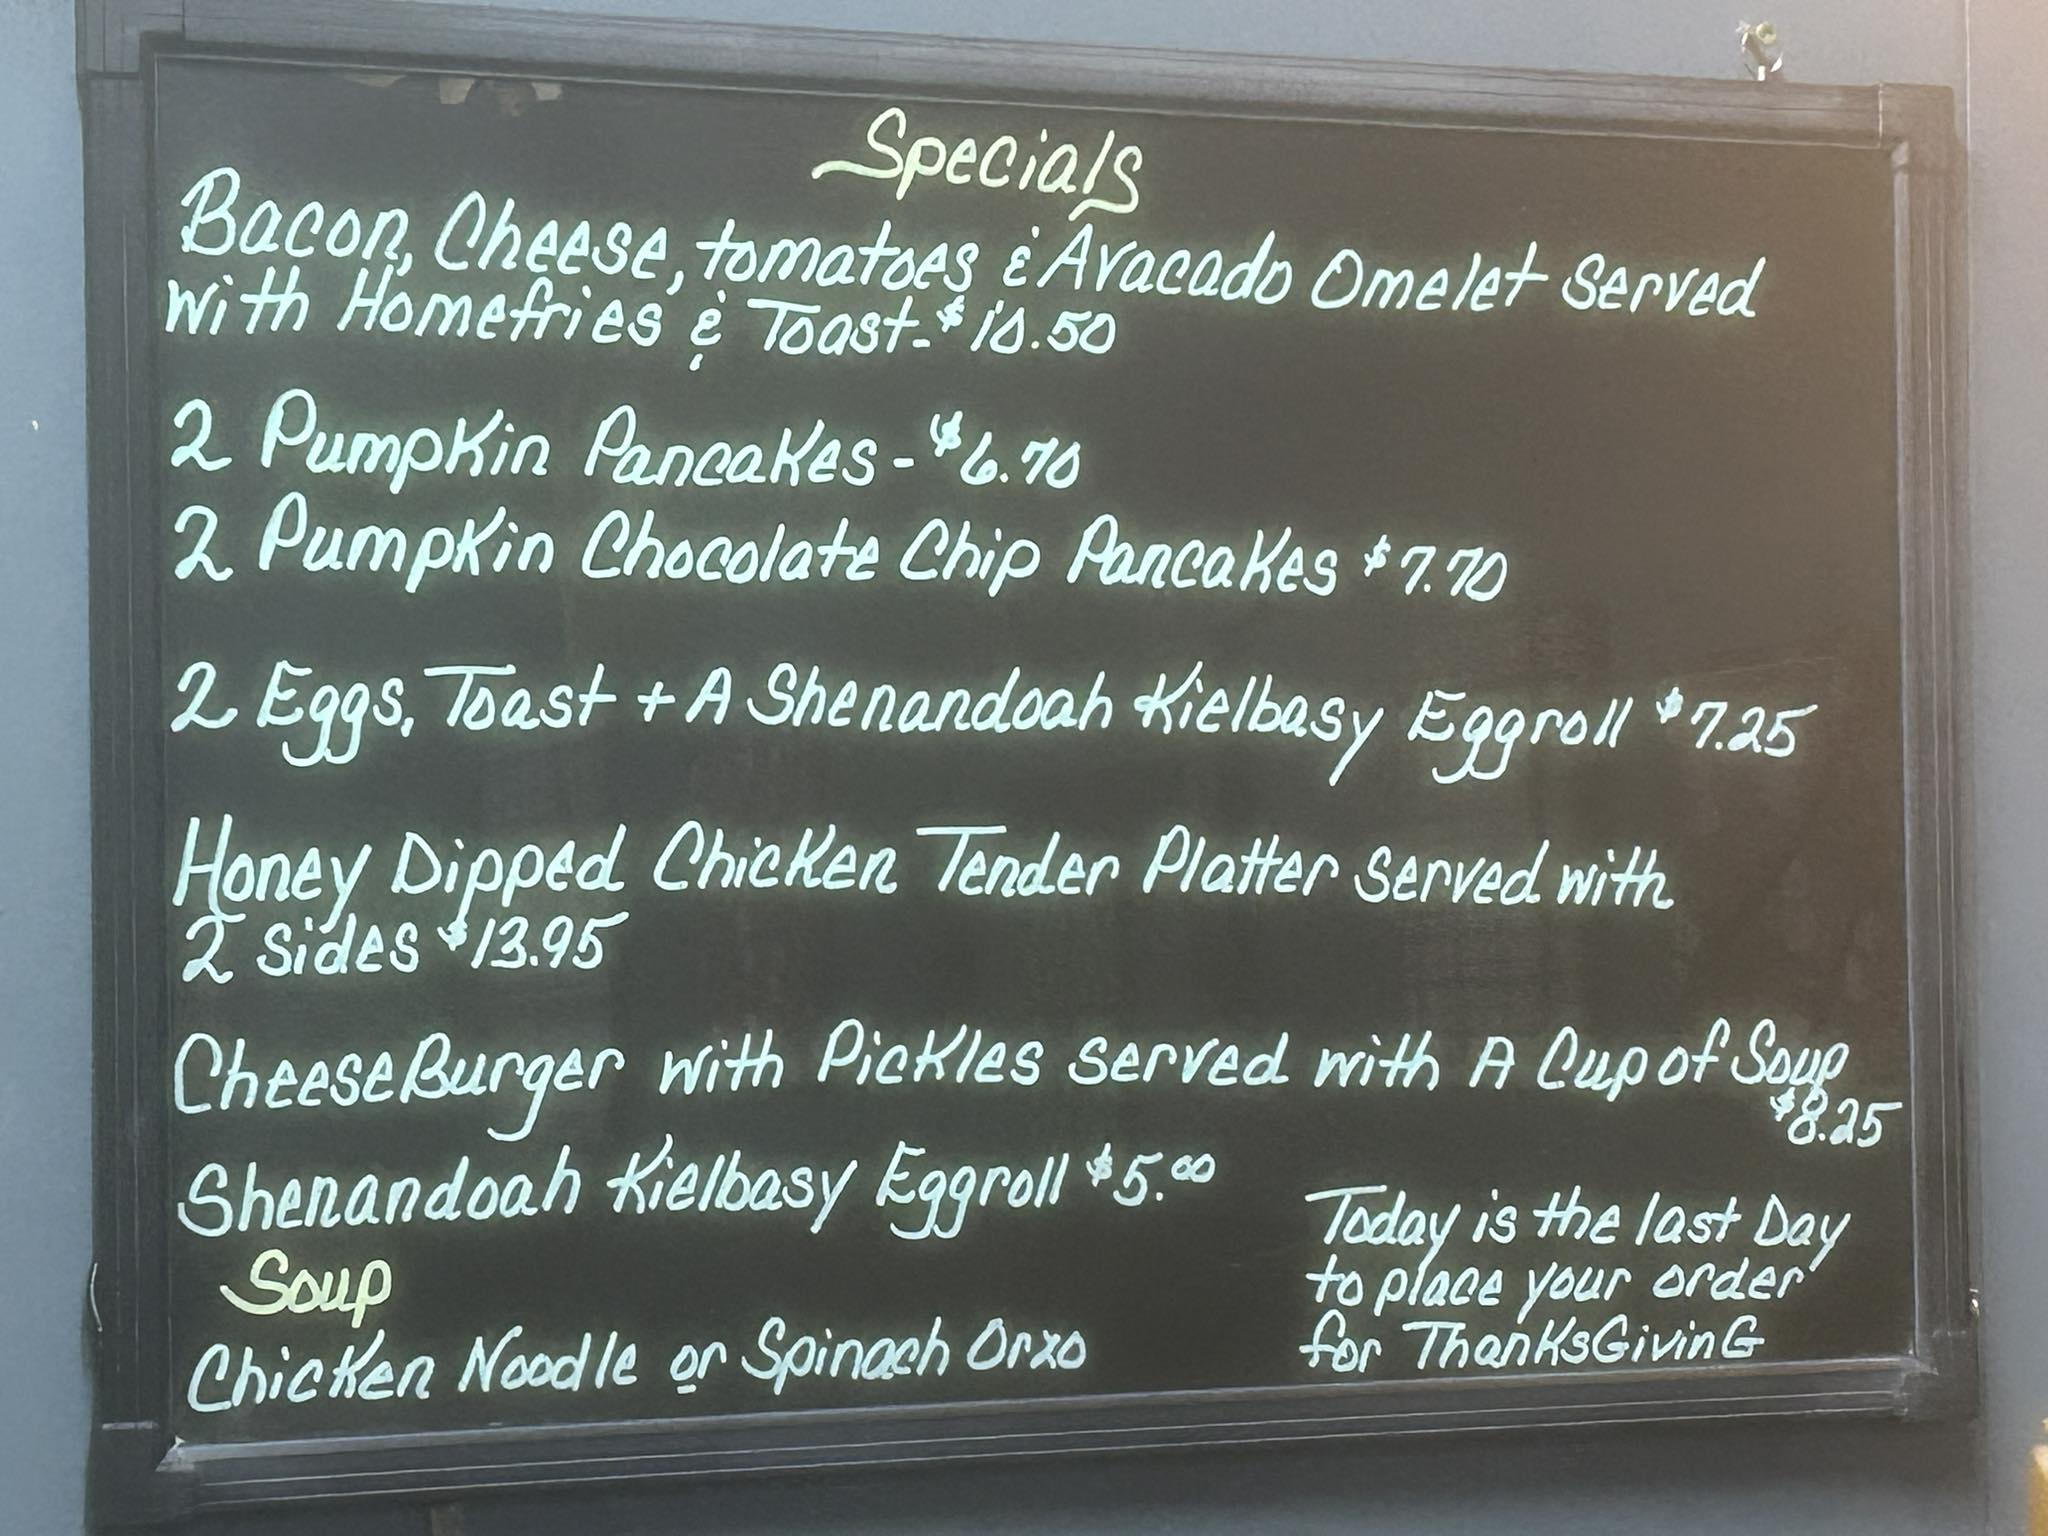 Specials
Bacon, Cheese, tomatoes & Avacado Omelet served
with Homefries & Toast-$10.50
2 Pumpkin Pancakes-$6.70
2 Pumpkin Chocolate Chip Pancakes $7.70
2 Eggs, Toast + A Shenandoah Kielbasy Eggroll $7.25
Honey Dipped Chicken Tender Platter served with
2 sides $13.95
CheeseBurger with Pickles served with A Cup of Soup
$8.25
Shenandoah Kielbasy Eggroll $5.00
Soup
Chicken Noodle or Spinach Orzo
Today is the last Day
to place your order
for ThanksGivinG